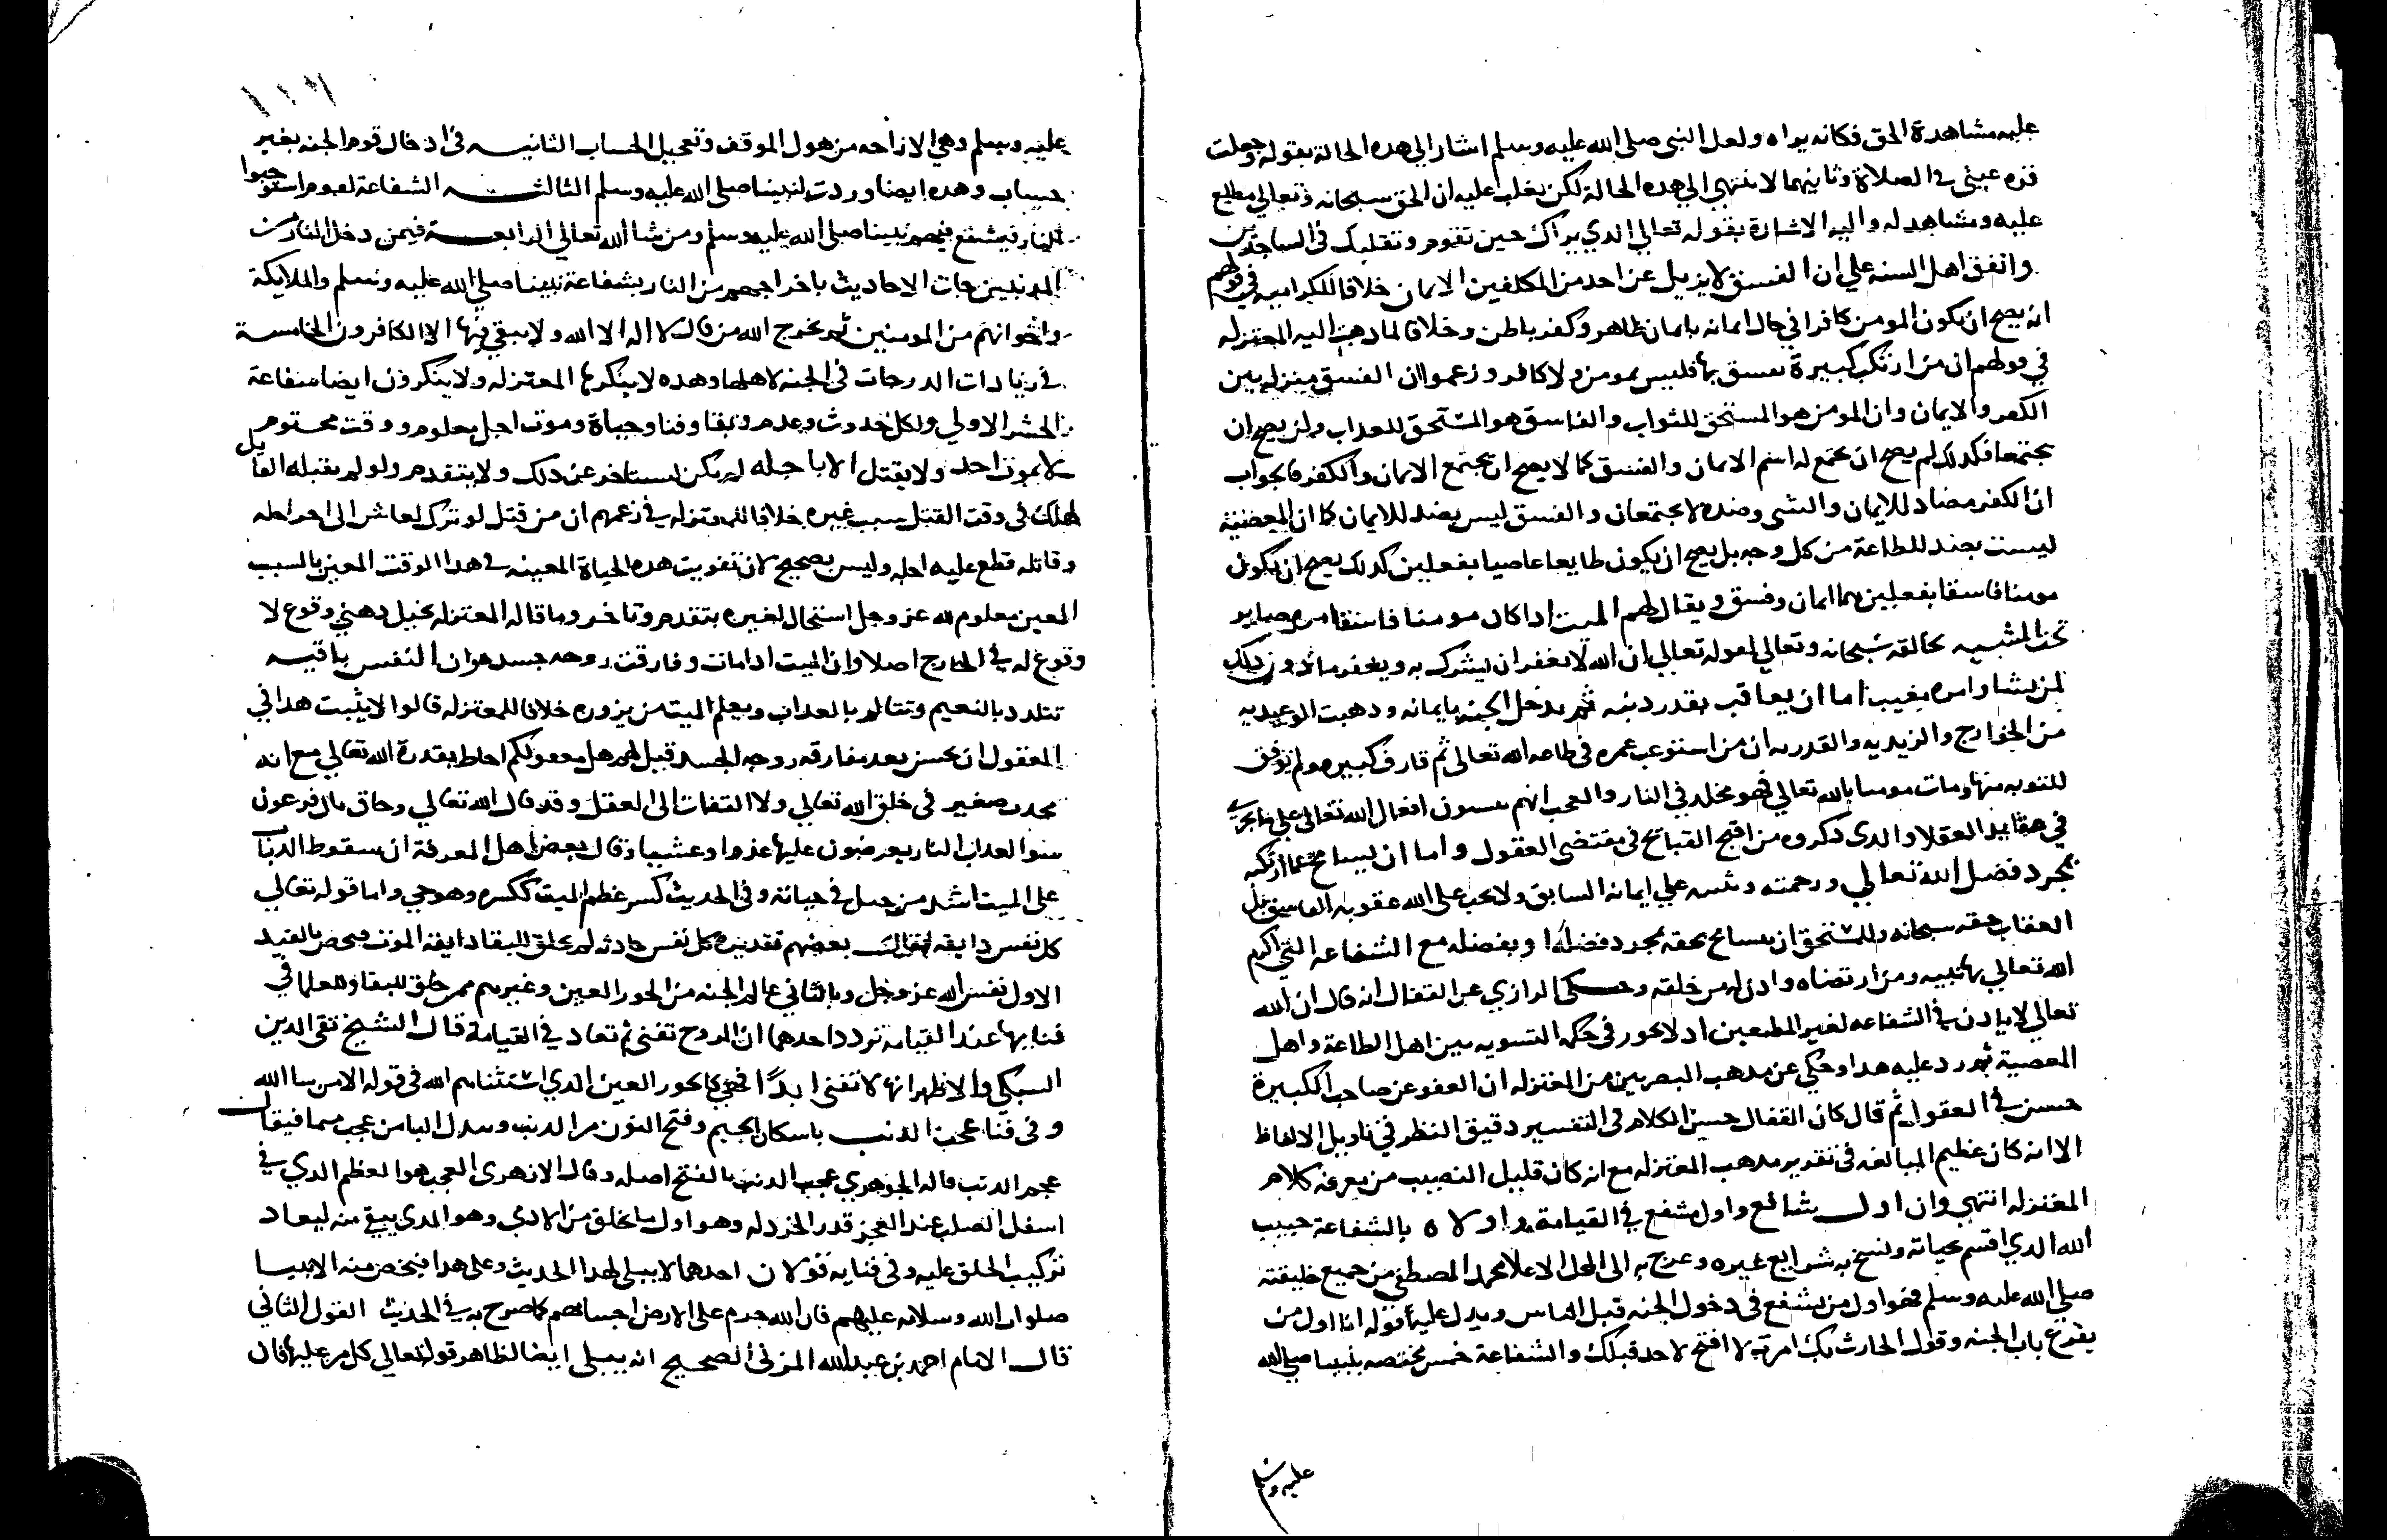 عليه مشاهدة الحق فكانه يراه ولعل النبي صلى الله عليه وسلم اشار الي هذه الحالة بقوله وجعلت
قره عيني في الصلاة وثانيهما لا ينتهي الي هذه الحالة لكن يغلب عليه ان الحق سبحانه وتعالي مطلع
عليه ومشاهد له واليه الاشارة بقوله تعالي الدي يراك حين تقوم وتقلبك في الساجدين
واتفق اهل السنه علي ان الفسق لا يزيل عن احد من المكلفين الايمان خلافا للكراميه في قولهم
انه يصح ان يكون المومن كافرا في حال ايمانه بايمان ظاهر وكفر باطن وخلافا لما دهبت اليه المعتزله
في قولهم ان من ارتكب كبيرة يفسق بها فليس بمومن ولا كافر وزعموا ان الفسق منزله بين
الكفر والايمان وان المومن هو المستحق للثواب والفاسق هو المستحق للعداب ولن يصح ان
يجتمعا فكدلك لم يصح ان يجتمع له اسم الايمان والفسق كما لا يصح ان يجتمع الايمان والكفر فالجواب
ان الكفر مضاد للايمان والشي وضده لا يجتمعان والفسق ليس بضد للايمان كما ان المعصية
ليست بضد للطاعة من كل وجه بل يصح ان يكون طايعا عاصيا بفعلين كدلك يصح ان يكون
مومنا فاسقا بفعلين هما ايمان وفسق ويقال لهم الميت ادا كان مومنا فاسقا امره صاير
تحت المشيه خالقه سبحانه وتعالي لقوله تعالي ان الله لا يغفر ان يشرك به ويغفر ما دون دلك
لمن يشا وامره مغيب اما ان يعاقب بقدر دنبه ثم يدخل الجنه بايمانه ودهبت الوعيديه
من الخوارج والزيديه والقدريه ان من استوعب عمره في طاعة الله تعالى ثم قارف كبيره ولم يوفق
للتوبه منها ومات مومنا بالله تعالي فهو مخلد في النار والعجب انهم يبنون افعال الله تعالى علي ما يجري
في عقايد العقلا والدي دكروه من اقبح القبائح في مقتضى العقول واما ان يسامح عما ارتكبه
بمجرد فضل الله تعالي ورحمته ويثيبه علي ايمانه السابق ولا يجب على الله عقوبه الفاسق بل
العقاب حقه سبحانه وللمستحق ان يسامح بحقه بمجرد فضله او بفضله مع الشفاعه التي اكرم
الله تعالي بها نبيه ومن ارتضاه وادن له من خلقه وحكى الرازي عن القفال انه قال ان الله
تعالي لا يادن في الشفاعه لغير المطيعين اد لا يجوز في حكمه التسويه بين اهل الطاعة واهل
المعصية ثم رد عليه هدا وحكي عن مدهب البصريين من المعتزله ان العفو عن صاحب الكبيرة
حسن في العقول ثم قال كان القفال حسن الكلام في التفسير دقيق النظر في تاويل الالفاظ
الا انه كان عظيم المبالغه في تقدير مدهب المعتزله مع انه كان قليل النصيب من معرفة كلام
المعتزله انتهي وان اول شافع واول مشفع في القيامة واولاه بالشفاعة حبيب
الله الدي اقسم بحياته ونسخ به شرايع غيره وعرج به الى المحل الاعلا محمد المصطفي من جميع خليقته
صلي الله عليه وسلم فهو اول من يشفع في دخول الجنه قبل الناس ويدل عليه قوله انا اول من
يقرع باب الجنه وقول الحارث بك امرت لا افتح لاحد قبلك والشفاعة خمس مختصه بنبينا صلي الله
عليه وسلم
١١٦
عليه وسلم وهي الاراحه من هول الموقف وتعجيل الحساب الثانيه في ادخال قوم الجنه بغير
حساب وهده ايضا وردت لنبينا صلي الله عليه وسلم الثالثه الشفاعة لقوم استوجبوا
النار فيشفع فيهم نبينا صلى الله عليه وسلم ومن شا الله تعالي الرابعه فيمن دخل النار من
المدنبين جات الاحاديث باخراجهم من النار بشفاعة نبينا صلي الله عليه وسلم والملايكة
واخوانهم من المومنين ثم يخرج الله من قال لا اله الا الله ولا يبقي فيها الا الكافرون الخامسة
في زيادات الدرجات في الجنه لاهلها وهده لا ينكرها المعتزله ولا ينكرون ايضا شفاعة
الحشر الاولي ولكل حدوث وعدم وبقا وفنا وحياة وموت اجل معلوم ووقت محتوم
لا يموت احد ولا يقتل الا باجله لم يكن ليستاخر عن دلك ولا يتقدم ولو لم يقتله القاتل
لهلك في وقت القتل بسبب غيره خلافا للمعتزله في زعمهم ان من قتل لو ترك لعاش الى اخر اجله
وقاتله قطع عليه اجله وليس بصحيح لان تفويت هده الحياة المعينه في هدا الوقت المعين بالسبب
المعين معلوم لله عز وجل استحال لغيره بتقدم وتاخر وما قاله المعتزله تخيل دهني وقوع لا
وقوع له في الخارج اصلا وان الميت ادا مات وفارقت روحه جسده وان النفس باقيه
تتلدد بالنعيم وتتالم بالعداب ويعلم الميت من يزوره خلافا للمعتزله قالوا لا يثبت هدا في
المعقول ان يحسن بعد مفارقه روحه الجسد قيل لهم هل معقولكم احاط بقدرة الله تعالي مع انه
محدث صغير في خلق الله تعالي ولا التفات الى العقل وقد قال الله تعالي وحاق بال فرعون
سوا العداب النار يعرضون عليها غدوا وعشيا وقال بعض اهل المعرفة ان سقوط الدباب
على الميت اشد من جبل في حياته وفي الحديث كسر عظم الميت ككسره وهو حي واما قوله تعالي
كل نفس دايقة فقال بعضهم تقديره كل نفس حادثه لم تخلق للبقا دايقة الموت فيخص بالقيد
الاول نفس الله عز وجل وبالثاني عالم الجنه من الحور العين وغيرهم ممن خلق للبقا وللعلما في
فنايها عند القيامه تردد احدهما ان الروح تفني ثم تعاد في القيامة قال الشيخ تقي الدين
السبكي والاظهر انها لا تفني ابدًا فهي كالحور العين الدي استثناهم الله في قوله الا من شا الله
وفي فنا عجب الدنب باسكان الجيم وفتح النون من الدنب وتبدل البا من عجب ميما فيقال
عجم الدنب قاله الجوهري عجب الدنب بالفتح اصله وقال الازهرى العجب هو العظم الدي في
اسفل الصلب عند العجز قدر الخردله وهو اول ما يخلق من الادمي وهو الدي يبقي منه ليعاد
تركيب الخلق عليه وفي فنايه قولان احدهما لا يبلى لهدا الحديث وعلى هدا فيخص منه الانبيا
صلوات الله وسلامه عليهم فان الله حرم على الارض اجسادهم كما صرح به في الحديث القول الثاني
قال الامام احمد بن عبدالله المزني الصحيح انه يبلى ايضا لظاهر قوله تعالي كل من عليها فان